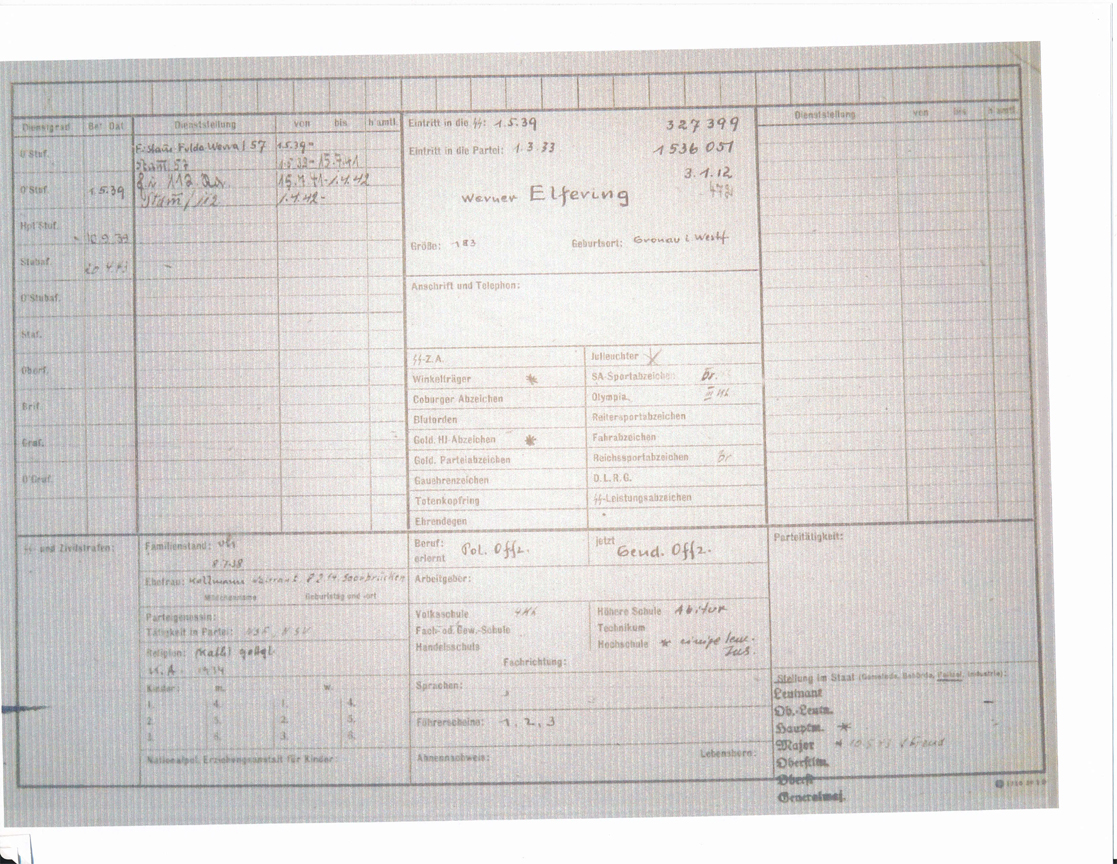 Dienstgrad Bef. Dat. Dienststellung von bis h'amtl.
U'Stuf. F. i. Stam. Fulda Werra / 57 1.5.39 -
Stam. 57 - 15.7.41
O'Stuf. 1.5.39 F. i. 112. 15.7.41 - 1.4.42
Stam / 112 1.4.42 -
Hpt'Stuf. 10.9.39
Stubaf.
O'Stubaf.
Staf.
Oberf.
Brif.
Graf.
O'Gruf.
Eintritt in die SS: 1.5.39 327 399
Eintritt in die Partei: 1.3.33 1 536 051
3.1.12
Werner Elfering
Größe: 183 Geburtsort: Gronau i. Westf
Anschrift und Telephon:
SS-Z.A. Julleuchter X
Winkelträger * SA-Sportabzeichen br.
Coburger Abzeichen Olympia
Blutorden Reitersportabzeichen
Gold. HJ-Abzeichen * Fahrabzeichen
Gold. Parteiabzeichen Reichssportabzeichen br
Gauehrenzeichen D.L.R.G.
Totenkopfring SS-Leistungsabzeichen
Ehrendegen
Dienststellung von bis h'amtl.
SS- und Zivilstrafen:
Familienstand: vh.
Ehefrau: Saarbrücken
Mädchenname Geburtstag und -ort
Parteigenossin:
Tätigkeit in Partei: NSV
Religion: (kath) gottgl.
K. A. 1934
Kinder: m. w.
1. 4. 1. 4.
2. 5. 2. 5.
3. 6. 3. 6.
Nationalpol. Erziehungsanstalt für Kinder:
Beruf: erlernt Pol. Offz. jetzt Gend. Offz.
Arbeitgeber:
Volksschule Höhere Schule Abitur
Fach- od. Gew.-Schule Technikum
Handelsschule Hochschule * einige
Fachrichtung:
Sprachen:
Führerscheine: 1, 2, 3
Ahnennachweis: Lebensborn:
Parteitätigkeit:
Stellung im Staat (Gemeinde, Behörde, Polizei, Industrie):
Leutnant
Ob.-Leutn.
Hauptm. *
Major *
Oberstltn.
Oberst
Generalmaj.